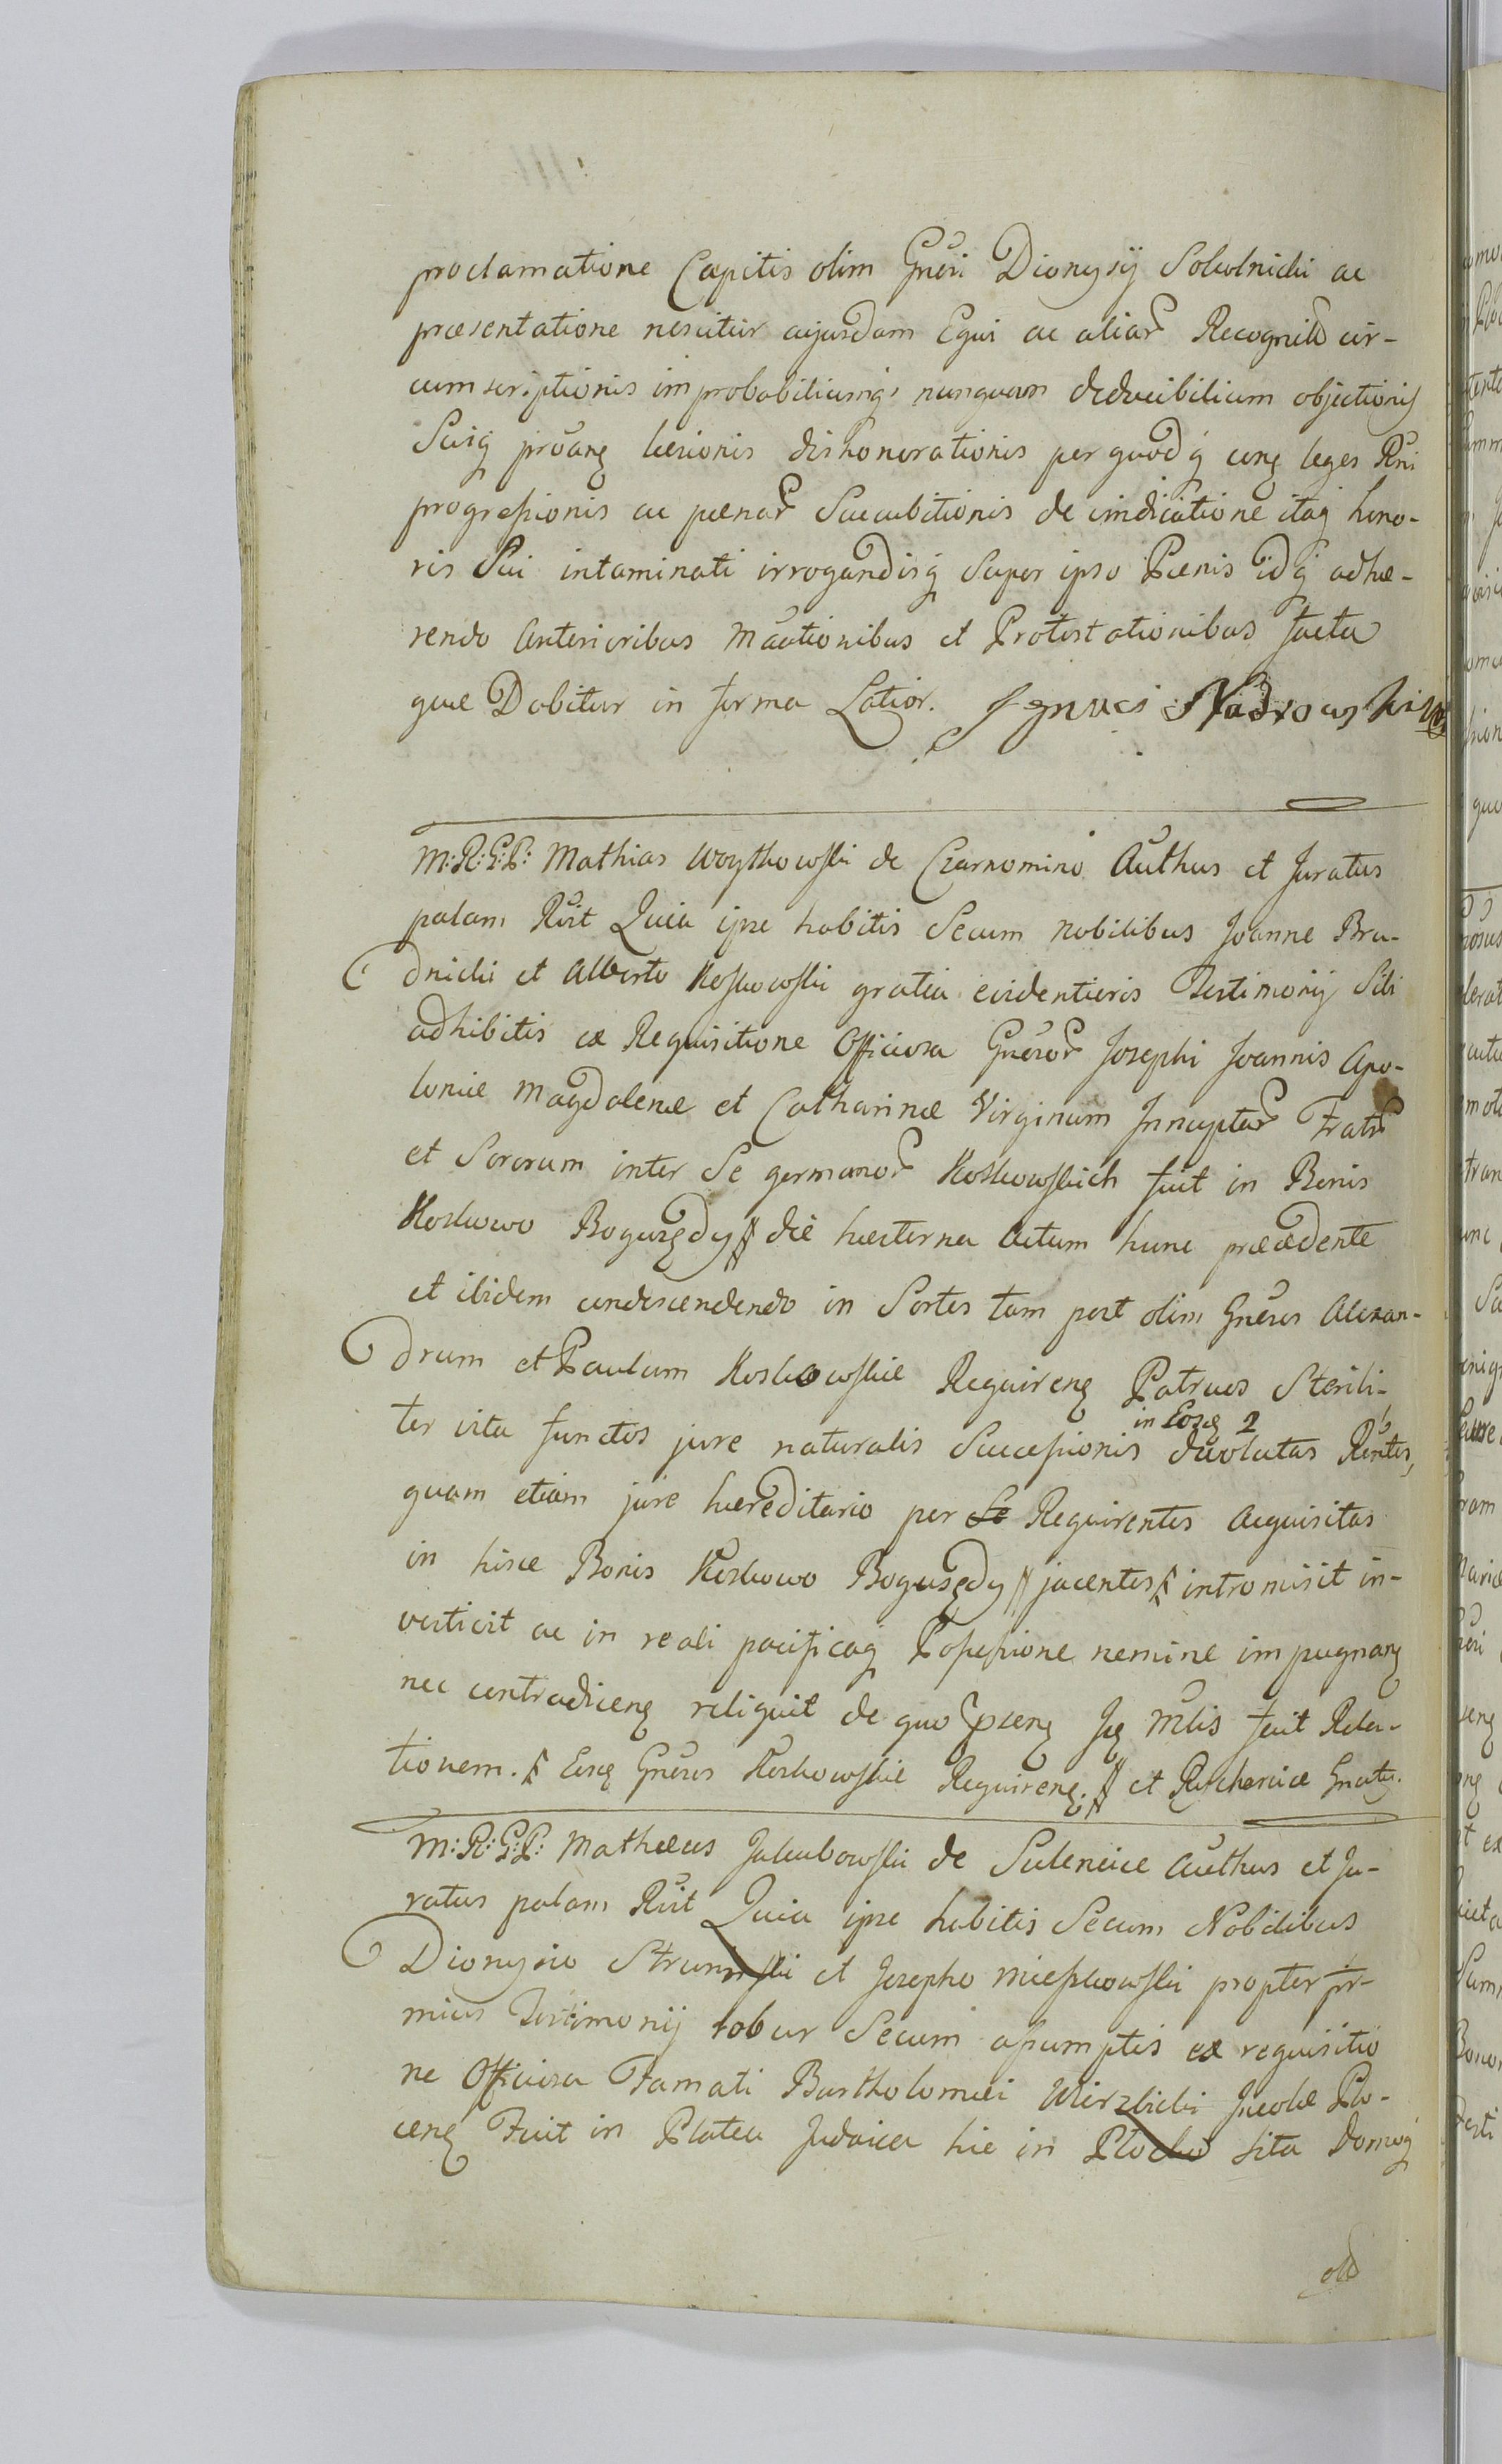 proclamatione Capitis olim Gnêri Dionysÿ Sokolnicki ac
præsentatione nescitur cujusdam Equi ac aliar Recognit cir-
cumscriptionis improbabiliumq nunquam deducibilium objectionis
Suiq læsionis dishonorationis per quodq cunq leges Rni
progressionis ac pœnar Succubitionis de vindicatione itaq hono-
ris Sui intaminati irrogandisq Super ipso Pœnis idq adhæ-
rendo anterioribus Mãationibus et Protestationibus facta
quæ Dabitur in forma Latior. Ignaci Nadrowski

M: R: G: P: Mathias Woytkowski de Czarnomino Authus et Juratus
palam Rũit Quia ipse habitis Secum nobilibus Joanne Bru-
dnicki et Alberto Koskowski gratia evidentioris Testimonÿ Sibi
adhibitis ex Requisitione Officiosa Gnêror Josephi Joannis Apo-
loniæ Magdalenæ et Catharinæ Virginum Innuptar Fratr
et Sororum inter Se germanor Koskowskich fuit in Bonis
Koskowo Boguszędy die hæsterna Actum hunc præcedente
et ibidem condescendendo in Sortes tam post olim Gnêros Alexan-
drum et Paulum Koskowskie Requirenȩ Patruos Sterili-
ter vita functos jure naturalis Successionis in Eosȩ 2 devolutas Rentes,
quam etiam jure hæreditario per Se Requirentes acquisitas
in hisce Bonis Koskowo Boguszędy jacentes intromisit in-
vestivit ac in reali pacificaq Possessione nemine impugnanȩ
nec contradicenȩ reliquit de quo præsenȩ Jȩ Mlis fecit Rela-
tionem. Eosȩ Gnêros Koskowskie Requirenȩ. et

M: R: G: P: Mathæus Jakubowski de Sulencice Authus et Ju-
ratus palam Rũit Quia ipse habitis Secum Nobilibus
Dionysio Strumski et Josepho Mieszkowski propter fir-
mius Testimonÿ robur Secum assumptis ex requisitio
ne Officiosa Famati Bartholomæi Wierzbicki Incolæ Plo-
cenȩ Fuit in Platea Judaica hic in Plocko sita Domoq